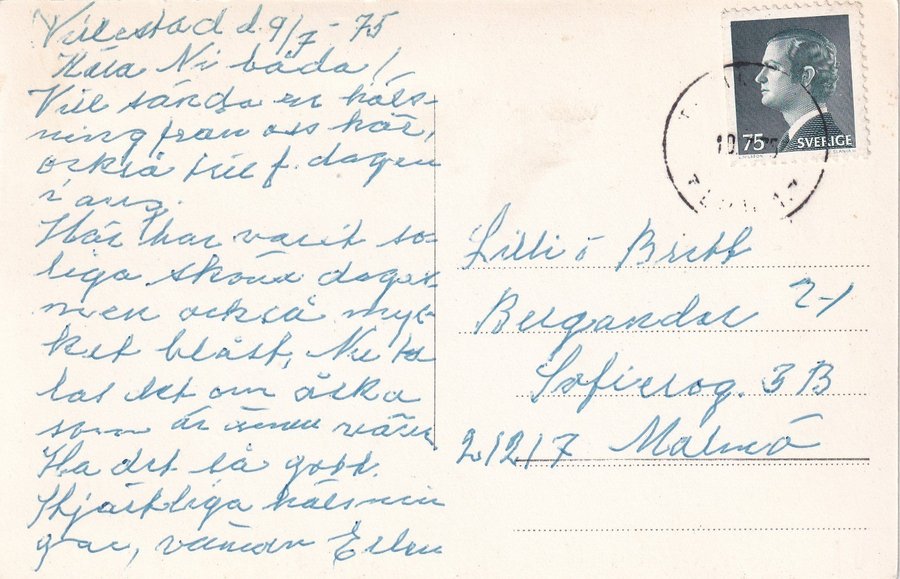 Villestad d. 9/7-75
Kära Ni båda!
Vill sända en häls-
ning från oss här,
också till f. dagen
i aug.
Här har varit so-
liga sköna dagar
men också myc-
ket blåst. Nu ta
las det om åska
som är ännu värre
Ha det så gott.
Hjärtliga hälsnin
gar, vännen Ellen
75 SVERIGE
Lilli o Britt
Bergander
Sofierog. 3 B
21217 Malmö